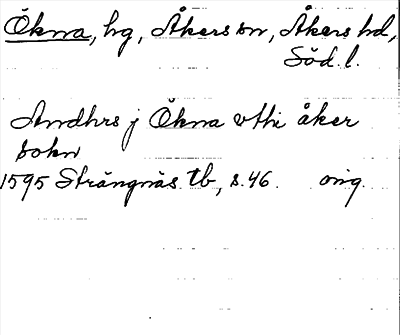 Ökna, hg, Åkers sn, Åkers hd,
Söd. l.
Andhrs j Ökna vthi åker
sokn
1595 Strängnäs tb, s. 46. orig.